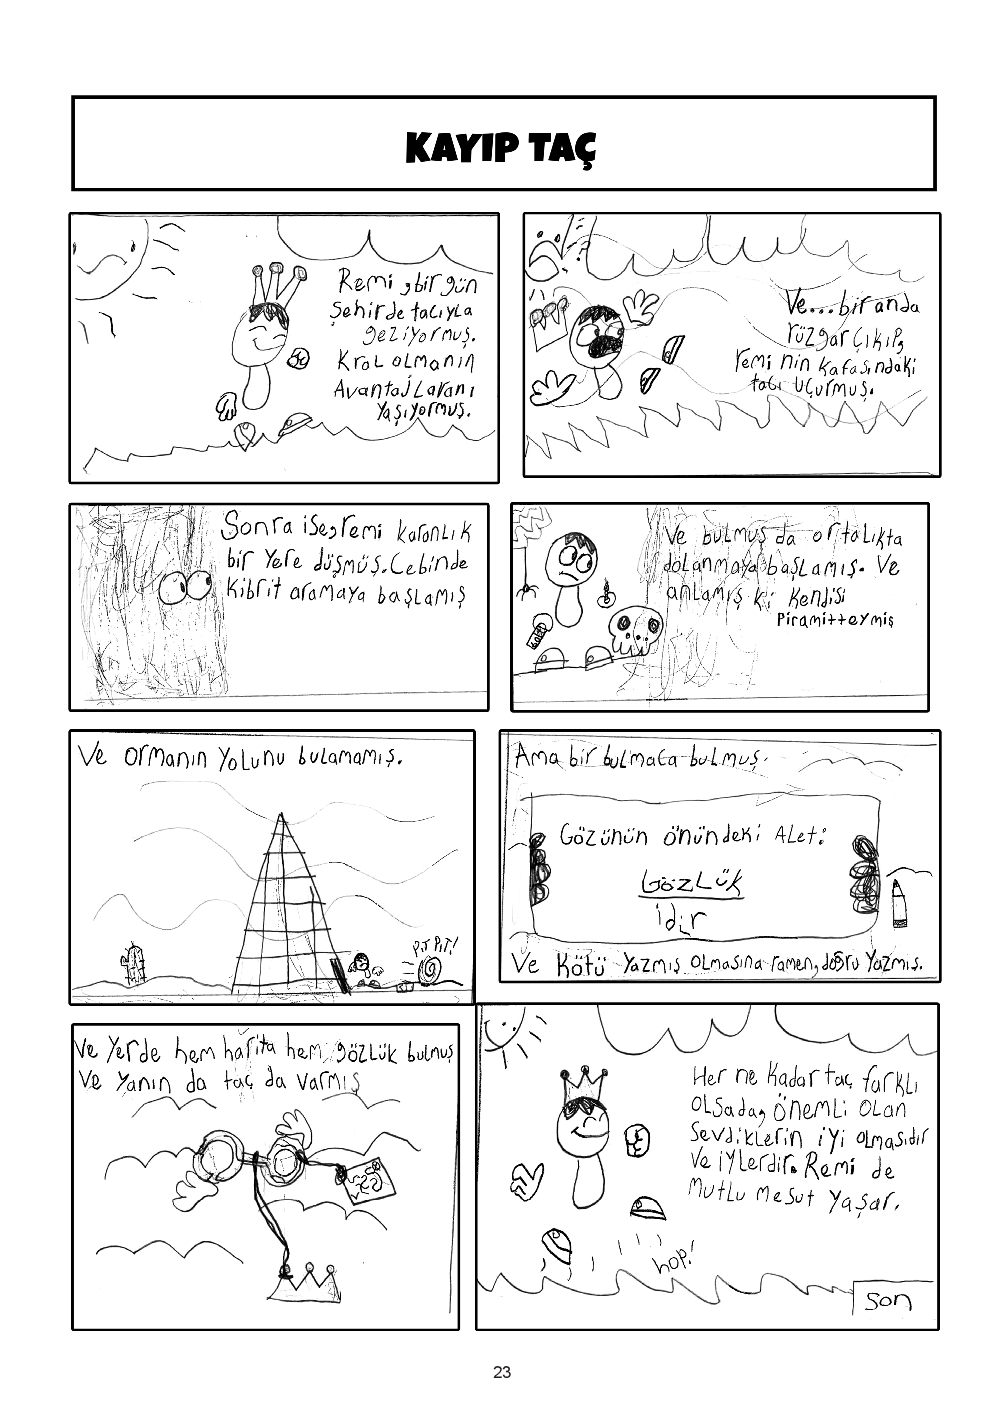 KAYIP TAÇ
Remi, bir gün
Şehirde tacıyla
geziyormuş.
Kral olmanın
Avantajlaranı
Yaşıyormuş.
Ve... bir anda
rüzgar çıkıp,
remi nin kafasındaki
tacı uçurmuş.
Sonra ise, remi karanlık
bir yere düşmüş. Cebinde
kibrit aramaya başlamış
Ve bulmuş da ortalıkta
dolanmaya başlamış. Ve
anlamış ki kendisi
Piramitteymiş
Ve ormanın yolunu bulamamış.
Pıt Pıt!
Ama bir bulmaca bulmuş.
Gözünün önündeki Alet:
Gözlük
idir
Ve kötü yazmış olmasına ramen, doğru yazmış.
Ve yerde hem harita hem gözlük bulmuş
Ve yanın da taç da varmış
Her ne kadar taç farklı
olsada, önemli olan
Sevdiklerin iyi olmasıdır
Ve iylerdir. Remi de
mutlu mesut yaşar.
hop!
son
23